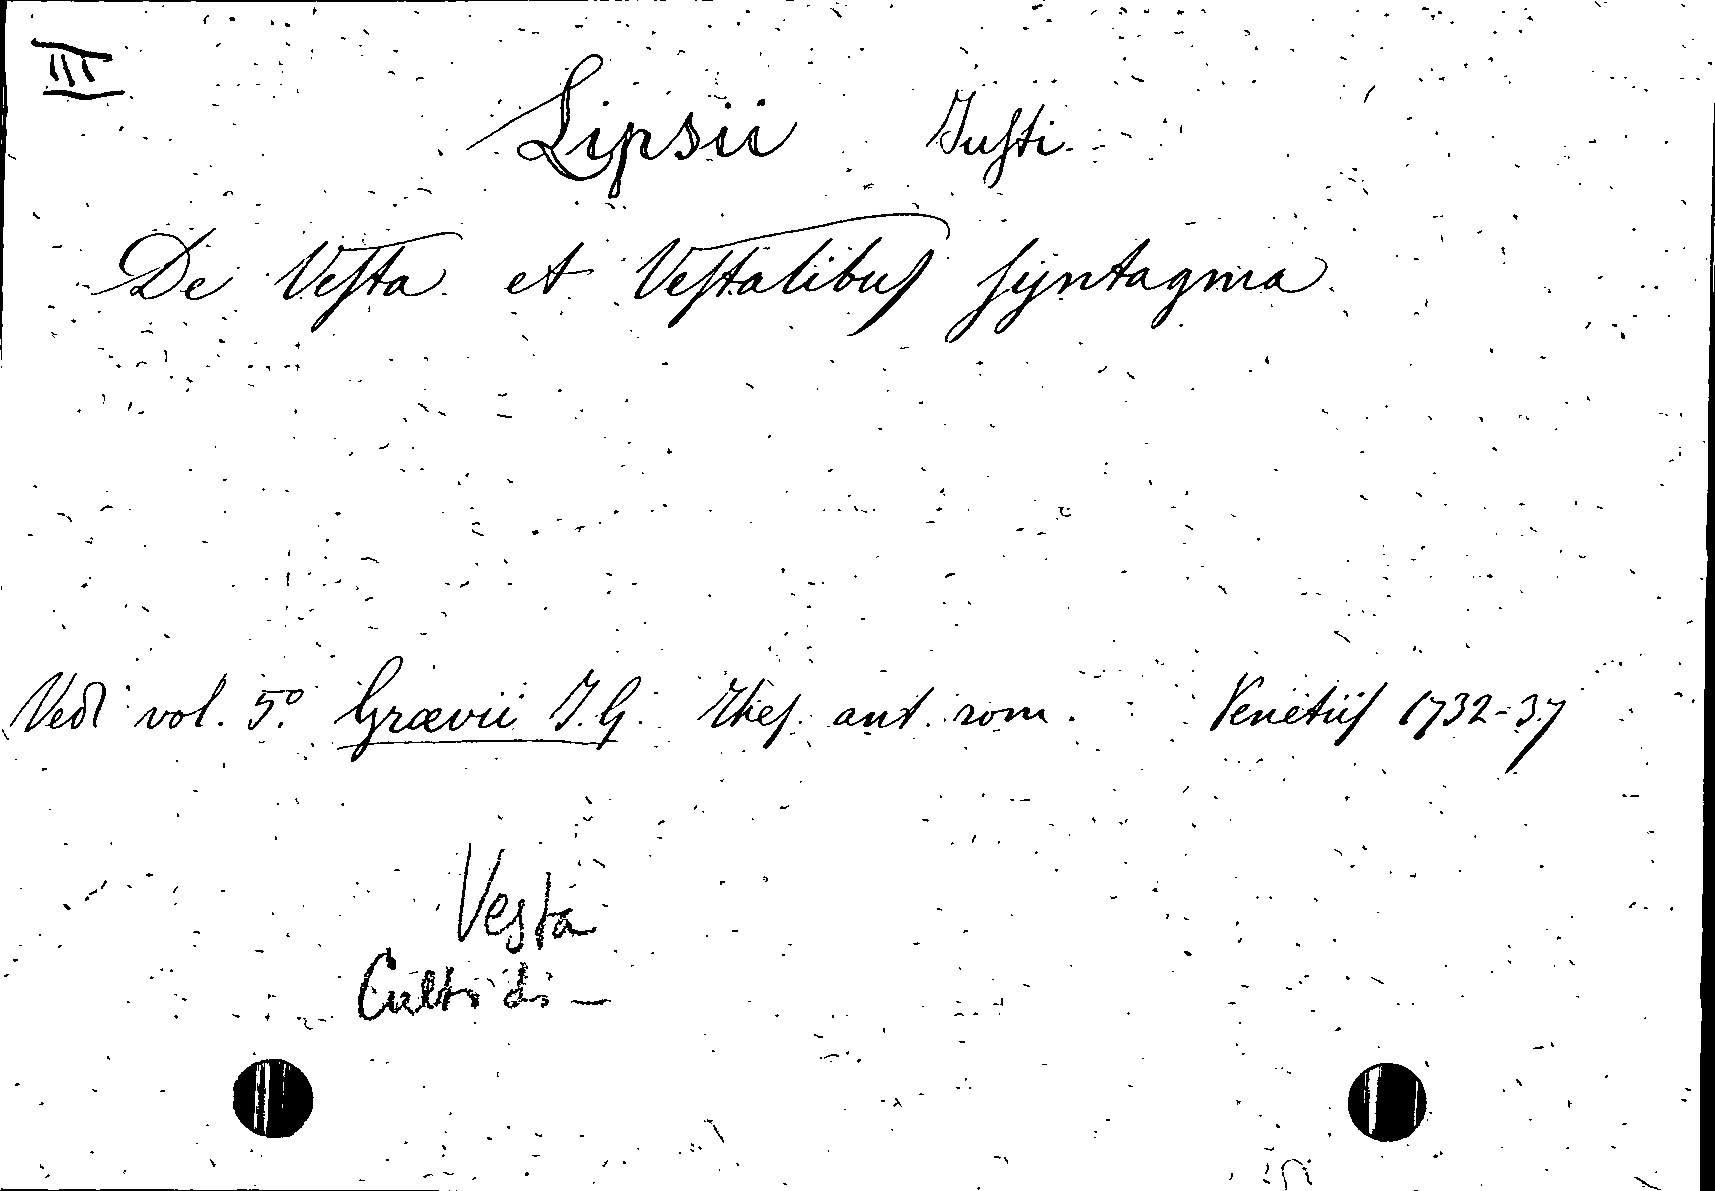 III
Lipsii Justi
De Vesta et Vestalibus syntagma
Vedi vol. 5.º Grævii J. G. Thes. ant. rom. Venetiis 1732-37
Vesta
Culto di –